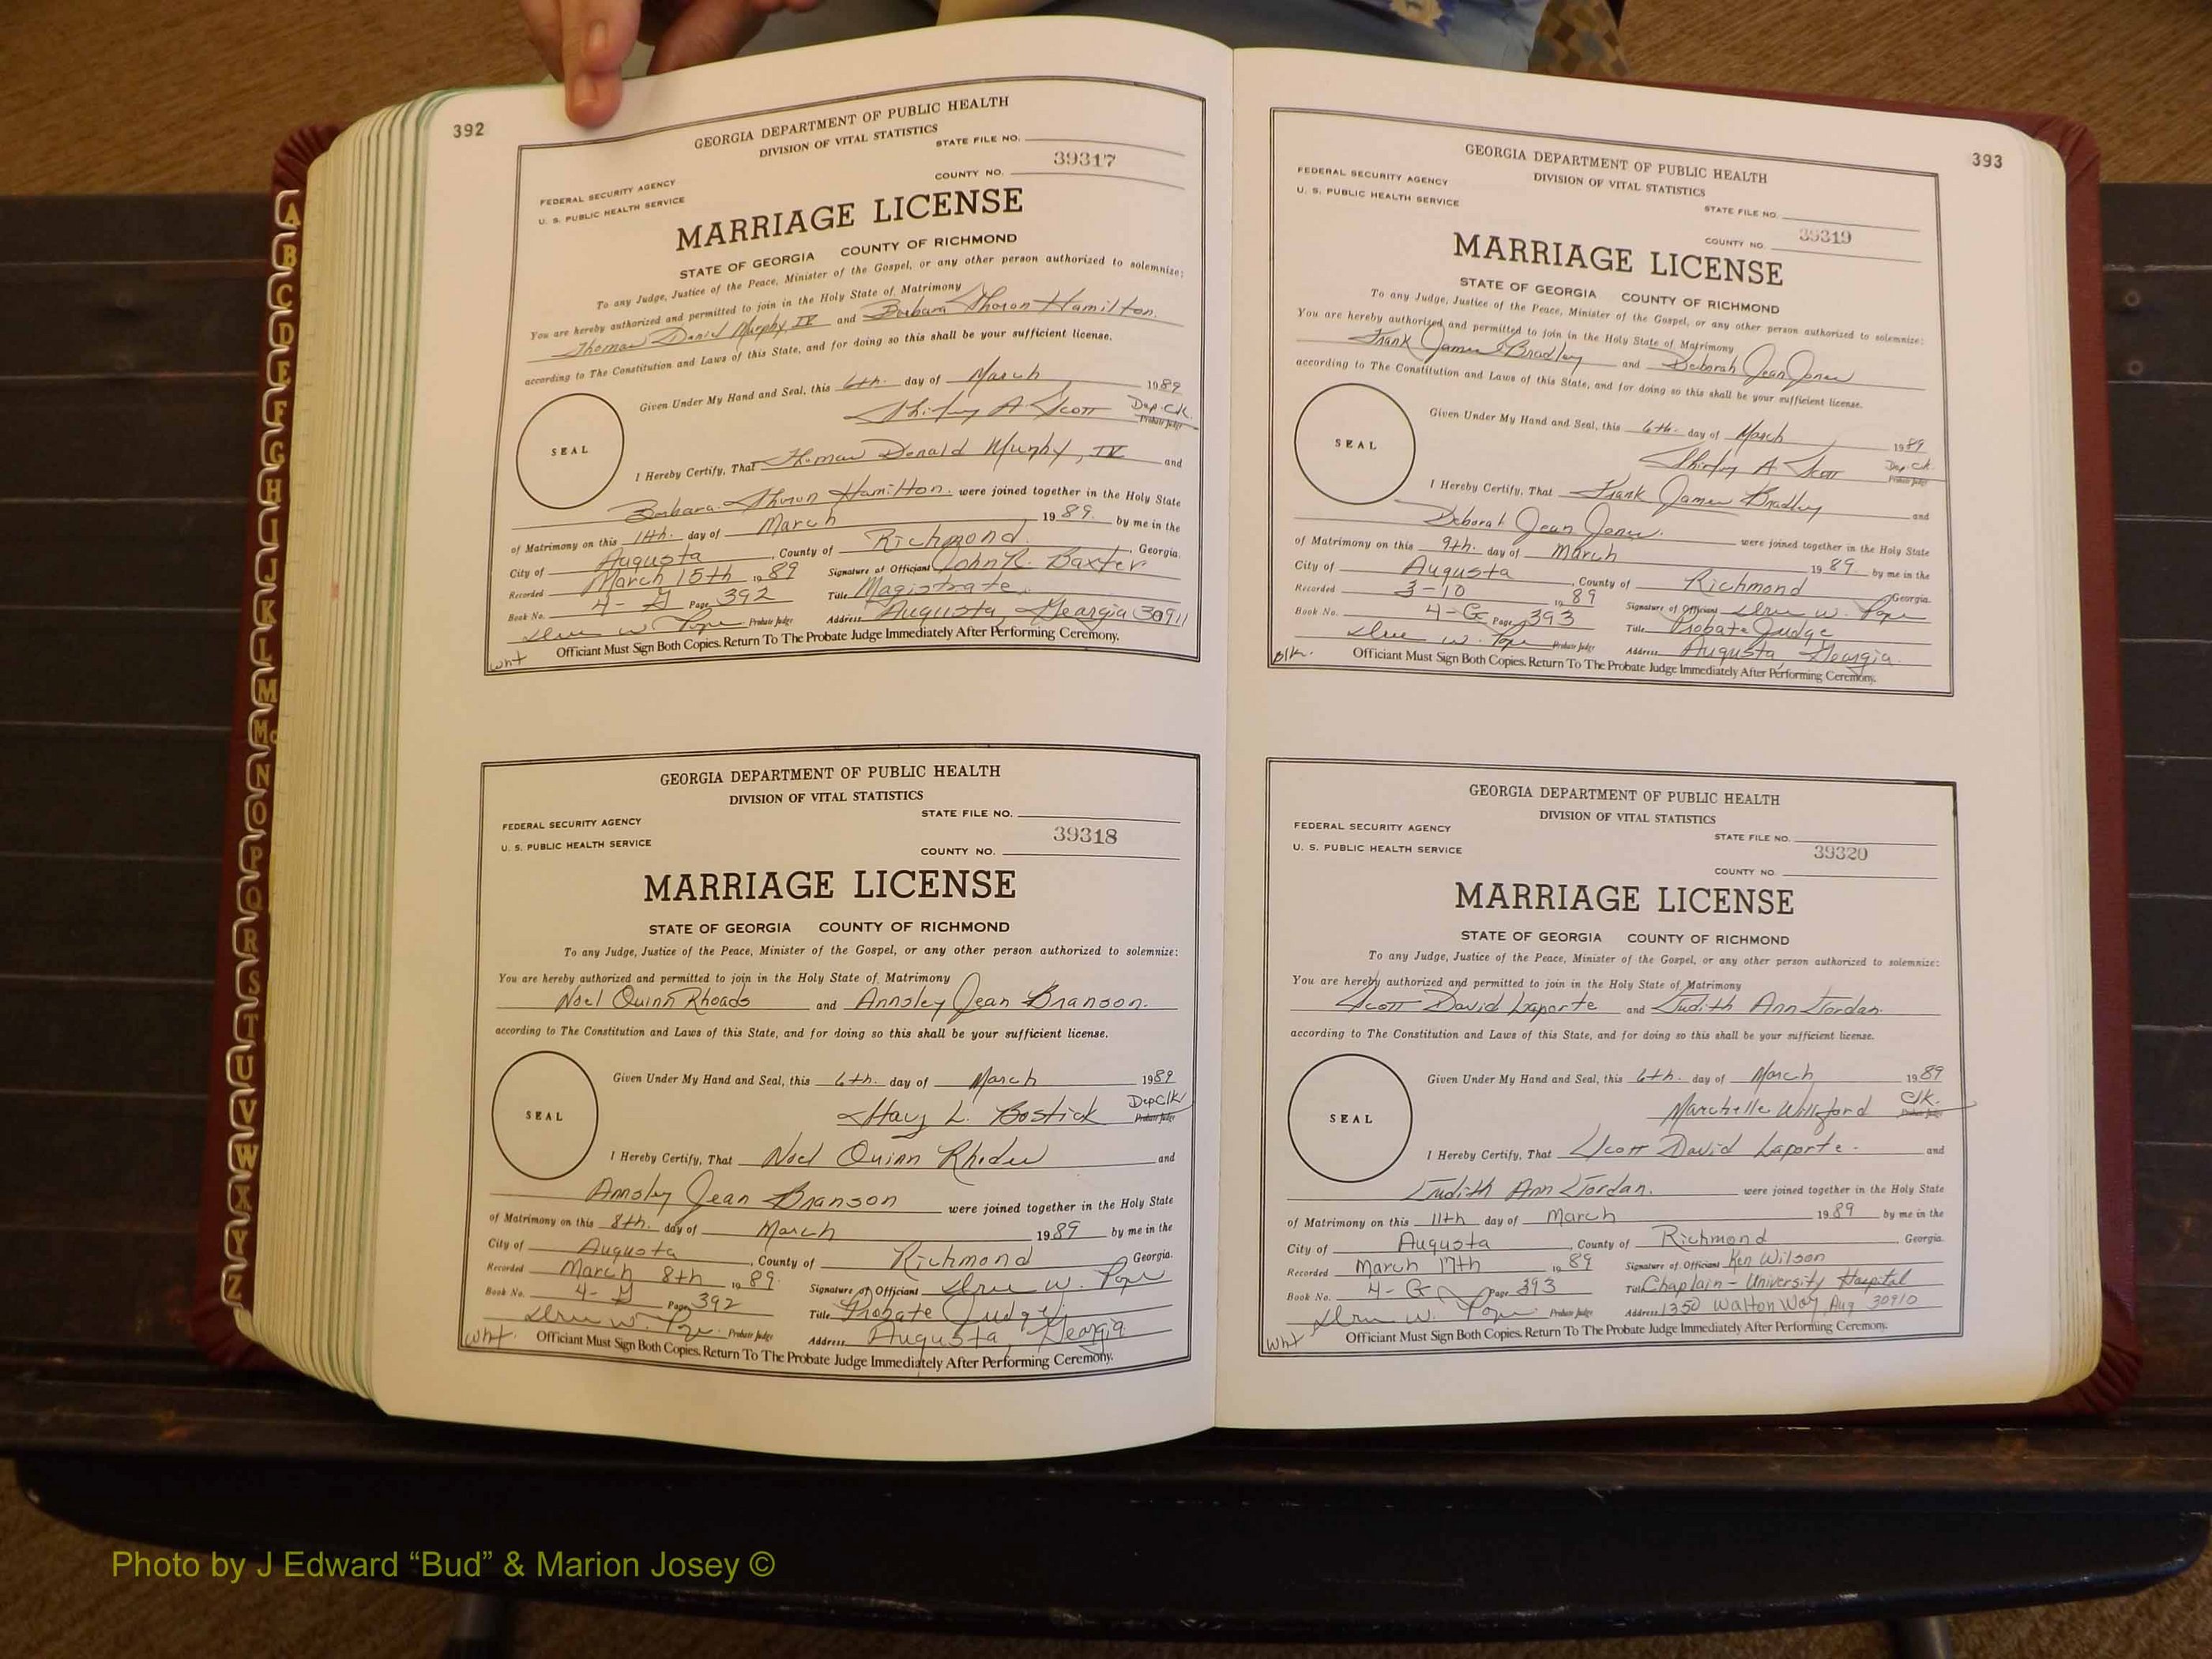 392
GEORGIA DEPARTMENT OF PUBLIC HEALTH
DIVISION OF VITAL STATISTICS
STATE FILE NO.
39317
FEDERAL SECURITY AGENCY
COUNTY NO.
U. S. PUBLIC HEALTH SERVICE
MARRIAGE LICENSE
STATE OF GEORGIA COUNTY OF RICHMOND
To any Judge, Justice of the Peace, Minister of the Gospel, or any other person authorized to solemnize:
You are hereby authorized and permitted to join in the Holy State of Matrimony
Thomas Murphy, IV and Barbara Hamilton.
according to The Constitution and Laws of this State, and for doing so this shall be your sufficient license.
Given Under My Hand and Seal, this 6th. day of March 1989
Shirley A Scott Dep. Clk.
Probate Judge
SEAL
I Hereby Certify, That Thomas Donald Murphy, IV and
Barbara Hamilton. were joined together in the Holy State
of Matrimony on this 11th. day of March 1989. by me in the
City of Augusta, County of Richmond, Georgia.
Recorded March 15th 1989 Signature of Officiant John R. Baxter
Book No. 4- G Page 392 Title Magistrate
Probate Judge Address Augusta, Georgia 30911
Wht Officiant Must Sign Both Copies. Return To The Probate Judge Immediately After Performing Ceremony.
GEORGIA DEPARTMENT OF PUBLIC HEALTH
DIVISION OF VITAL STATISTICS
STATE FILE NO.
FEDERAL SECURITY AGENCY
39318
U. S. PUBLIC HEALTH SERVICE
COUNTY NO.
MARRIAGE LICENSE
STATE OF GEORGIA COUNTY OF RICHMOND
To any Judge, Justice of the Peace, Minister of the Gospel, or any other person authorized to solemnize:
You are hereby authorized and permitted to join in the Holy State of Matrimony
Noel Quinn Rhoads and Annsley Jean Branson.
according to The Constitution and Laws of this State, and for doing so this shall be your sufficient license.
Given Under My Hand and Seal, this 6th. day of March 1989
Stacy L. Bostick Dep Clk
Probate Judge
SEAL
I Hereby Certify, That Noel Quinn and
Jean Branson were joined together in the Holy State
of Matrimony on this 8th. day of March 1989 by me in the
City of Augusta, County of Richmond Georgia.
Recorded March 8th 1989. Signature of Officiant W. Pope
Book No. 4- G Page 392 Title Probate Judge
W. Pope Probate Judge Address Augusta, Georgia
Wht. Officiant Must Sign Both Copies. Return To The Probate Judge Immediately After Performing Ceremony.
393
GEORGIA DEPARTMENT OF PUBLIC HEALTH
DIVISION OF VITAL STATISTICS
FEDERAL SECURITY AGENCY
U. S. PUBLIC HEALTH SERVICE
STATE FILE NO.
39319
COUNTY NO.
MARRIAGE LICENSE
STATE OF GEORGIA COUNTY OF RICHMOND
To any Judge, Justice of the Peace, Minister of the Gospel, or any other person authorized to solemnize:
You are hereby authorized and permitted to join in the Holy State of Matrimony
Frank James Bradley and Deborah Jean Jones
according to The Constitution and Laws of this State, and for doing so this shall be your sufficient license.
Given Under My Hand and Seal, this 6th. day of March, 1989
Shirley A Scott Dep. Clk.
Probate Judge
SEAL
I Hereby Certify, That Frank James Bradley and
Deborah Jean Jones. were joined together in the Holy State
of Matrimony on this 9th. day of March 1989 by me in the
City of Augusta, County of Richmond Georgia.
Recorded 3-10 1989 Signature of Officiant W. Pope
Book No. 4-G Page 393 Title Probate Judge
W. Pope Probate Judge Address Augusta, Georgia
Blk. Officiant Must Sign Both Copies. Return To The Probate Judge Immediately After Performing Ceremony.
GEORGIA DEPARTMENT OF PUBLIC HEALTH
DIVISION OF VITAL STATISTICS
FEDERAL SECURITY AGENCY
STATE FILE NO.
U. S. PUBLIC HEALTH SERVICE
39320
COUNTY NO.
MARRIAGE LICENSE
STATE OF GEORGIA COUNTY OF RICHMOND
To any Judge, Justice of the Peace, Minister of the Gospel, or any other person authorized to solemnize:
You are hereby authorized and permitted to join in the Holy State of Matrimony
Scott David Laporte and Judith Ann Jordan.
according to The Constitution and Laws of this State, and for doing so this shall be your sufficient license.
Given Under My Hand and Seal, this 6th. day of March 1989
Marchelle Clk.
Probate Judge
SEAL
I Hereby Certify, That Scott David Laporte. and
Judith Ann Jordan. were joined together in the Holy State
of Matrimony on this 11th day of March 1989 by me in the
City of Augusta, County of Richmond, Georgia.
Recorded March 17th 1989 Signature of Officiant Ken Wilson
Book No. 4-G Page 393 Title Chaplain - University Hospital
W. Pope Probate Judge Address 1350 Walton Way Aug 30910
Wht Officiant Must Sign Both Copies. Return To The Probate Judge Immediately After Performing Ceremony.
A
B
C
D
E
F
G
H
I
J
K
L
M
Mc
N
O
P
Q
R
S
T
U
V
W
X
Y
Z
Photo by J Edward “Bud” & Marion Josey ©